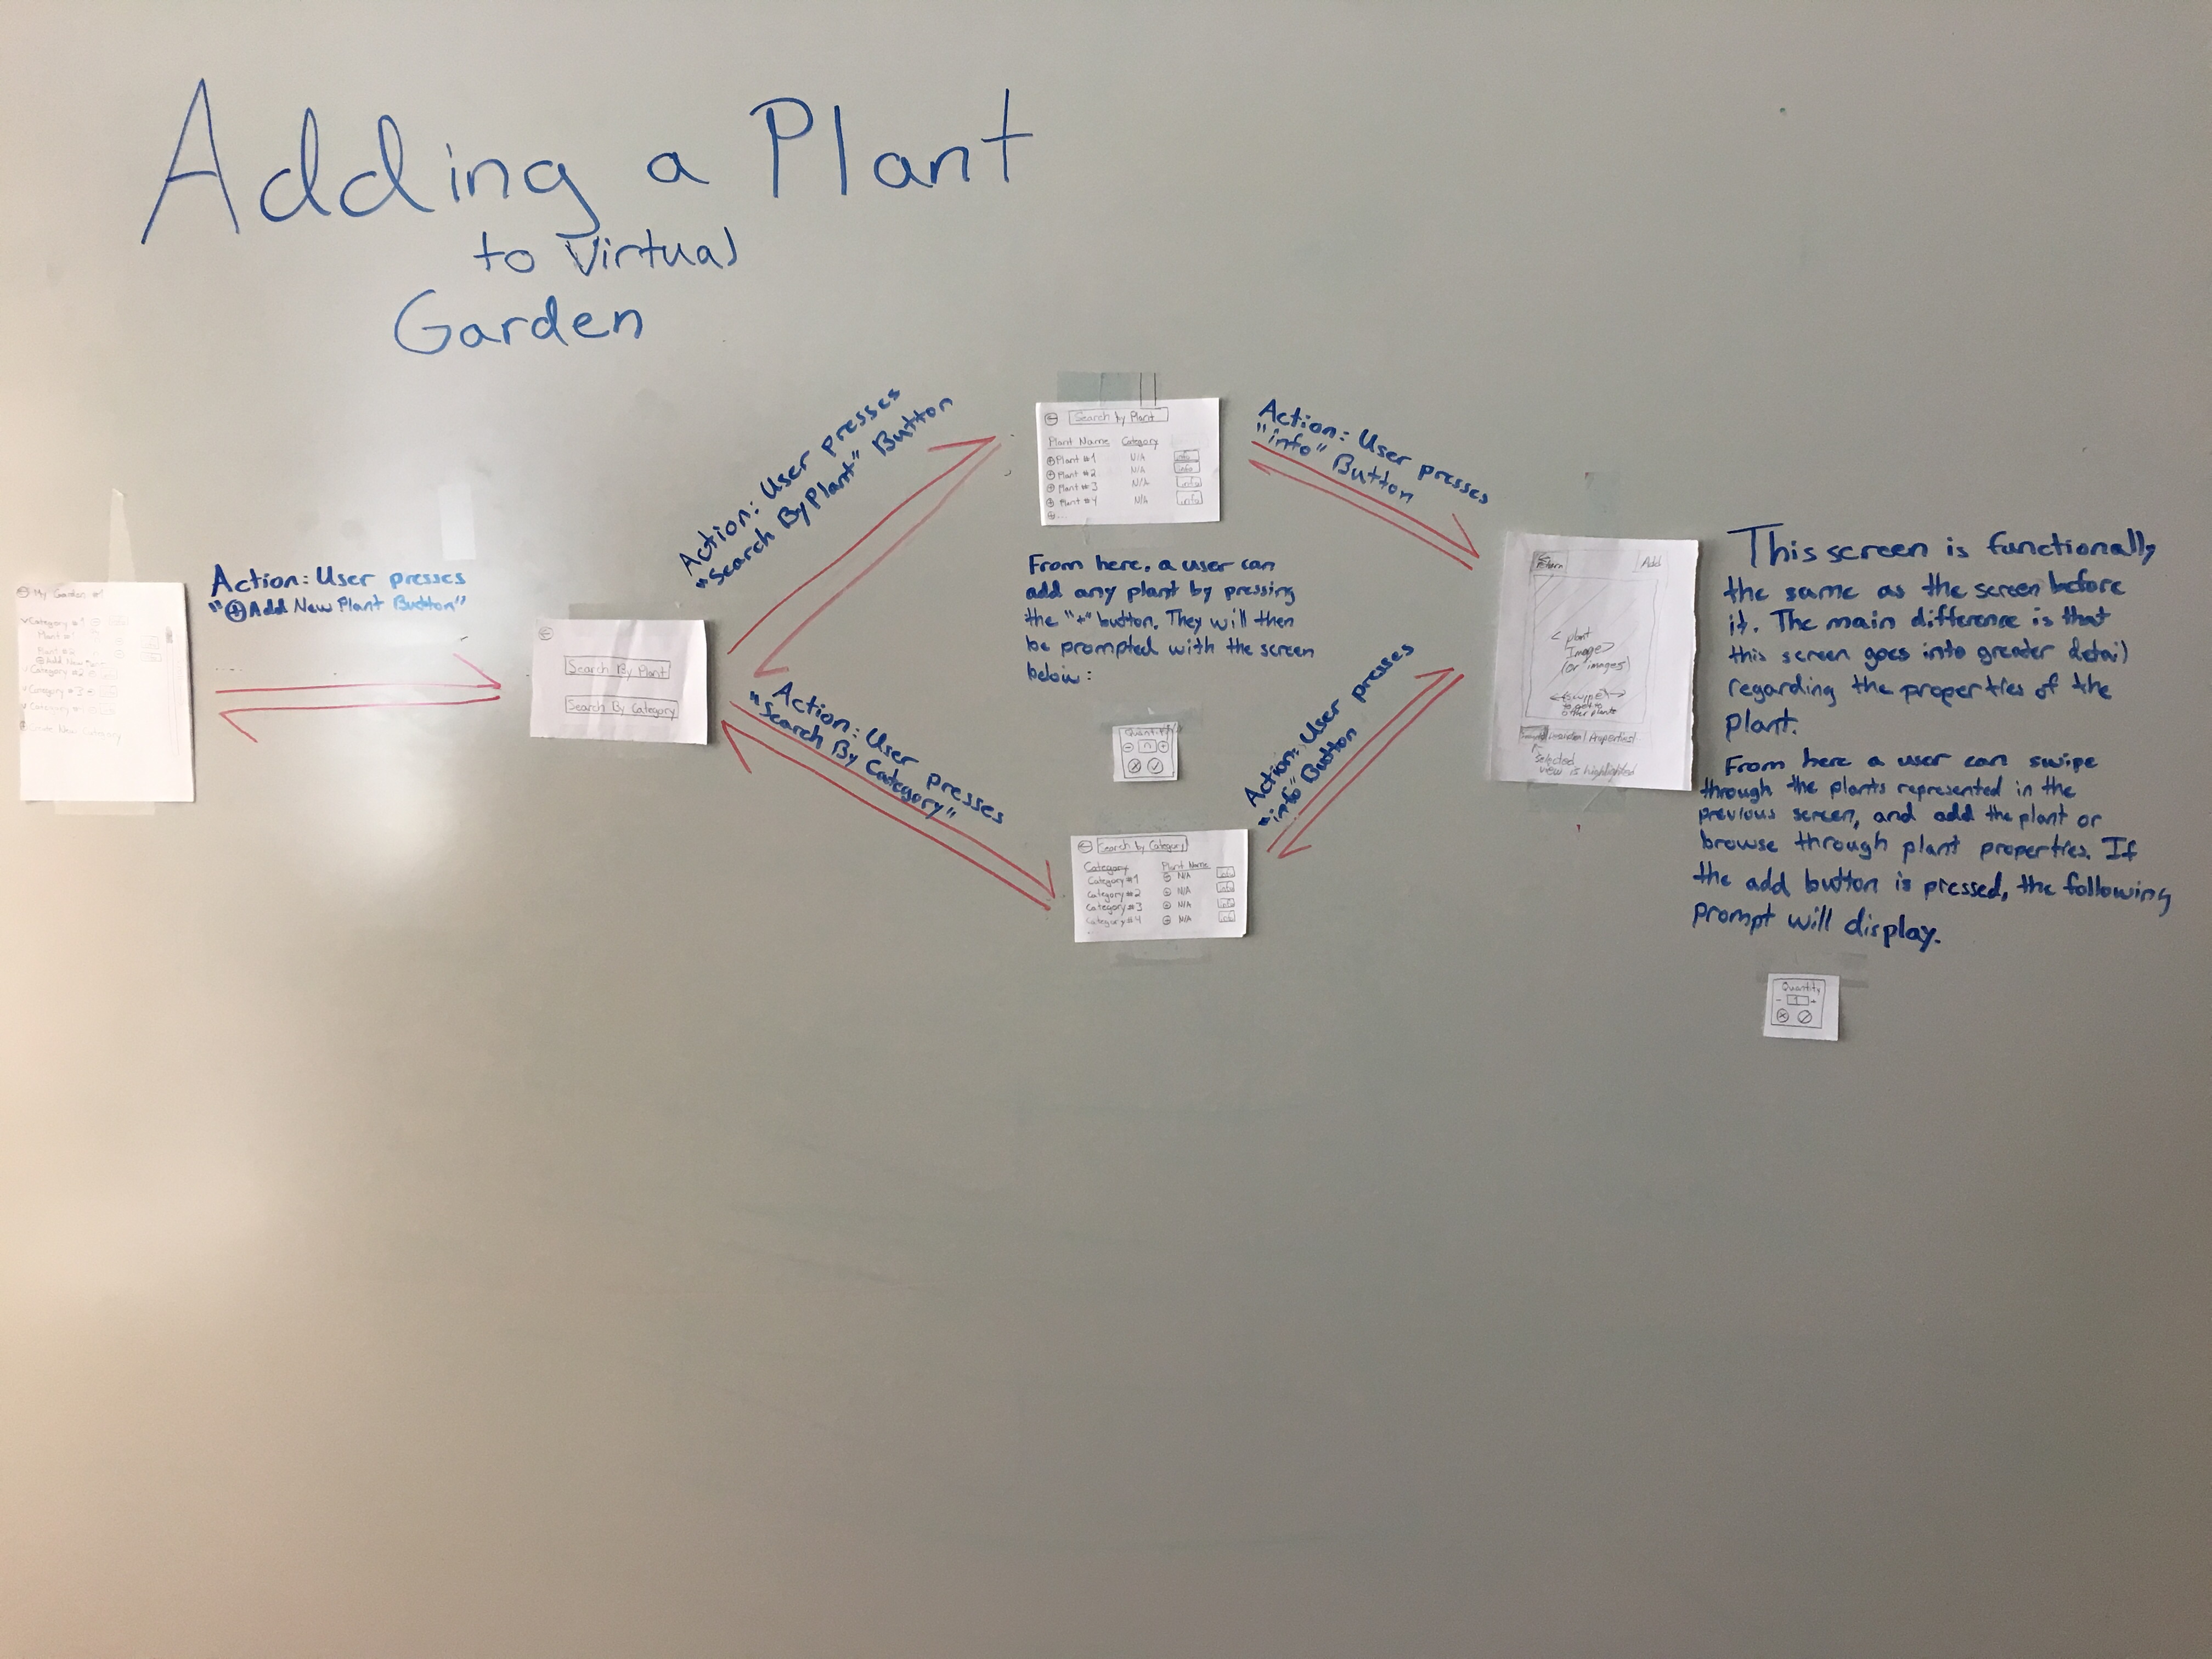 Adding a Plant
to Virtual
Garden
My Garden #1
Category #1
Plant #1
Plant #2
Add New Plant
Category #2
Category #3
Create New Category
Action: User presses
"⊕Add New Plant Button"
←
Search By Plant
Search By Category
Action: User presses
"Search By Plant" Button
Action: User presses
"Search By Category"
← Search by Plant
Plant Name Category
⊕ Plant #1 N/A info
⊕ Plant #2 N/A info
⊕ Plant #3 N/A info
⊕ Plant #4 N/A info
⊕...
From here, a user can
add any plant by pressing
the "+" button. They will then
be prompted with the screen
below:
Quantity
- n +
← Search by Category
Category Plant Name
Category #1 N/A info
Category #2 N/A info
Category #3 N/A info
Category #4 N/A info
Action: User presses
"info" Button
Action: User presses
"info" Button
Add
< plant
Image>
(or images)
<swipe>
to get to
other plants
Properties
selected
view is highlighted
This screen is functionally
the same as the screen before
it. The main difference is that
this screen goes into greater detail
regarding the properties of the
plant.
From here a user can swipe
through the plants represented in the
previous screen, and add the plant or
browse through plant properties. If
the add button is pressed, the following
prompt will display.
Quantity
- 1 +